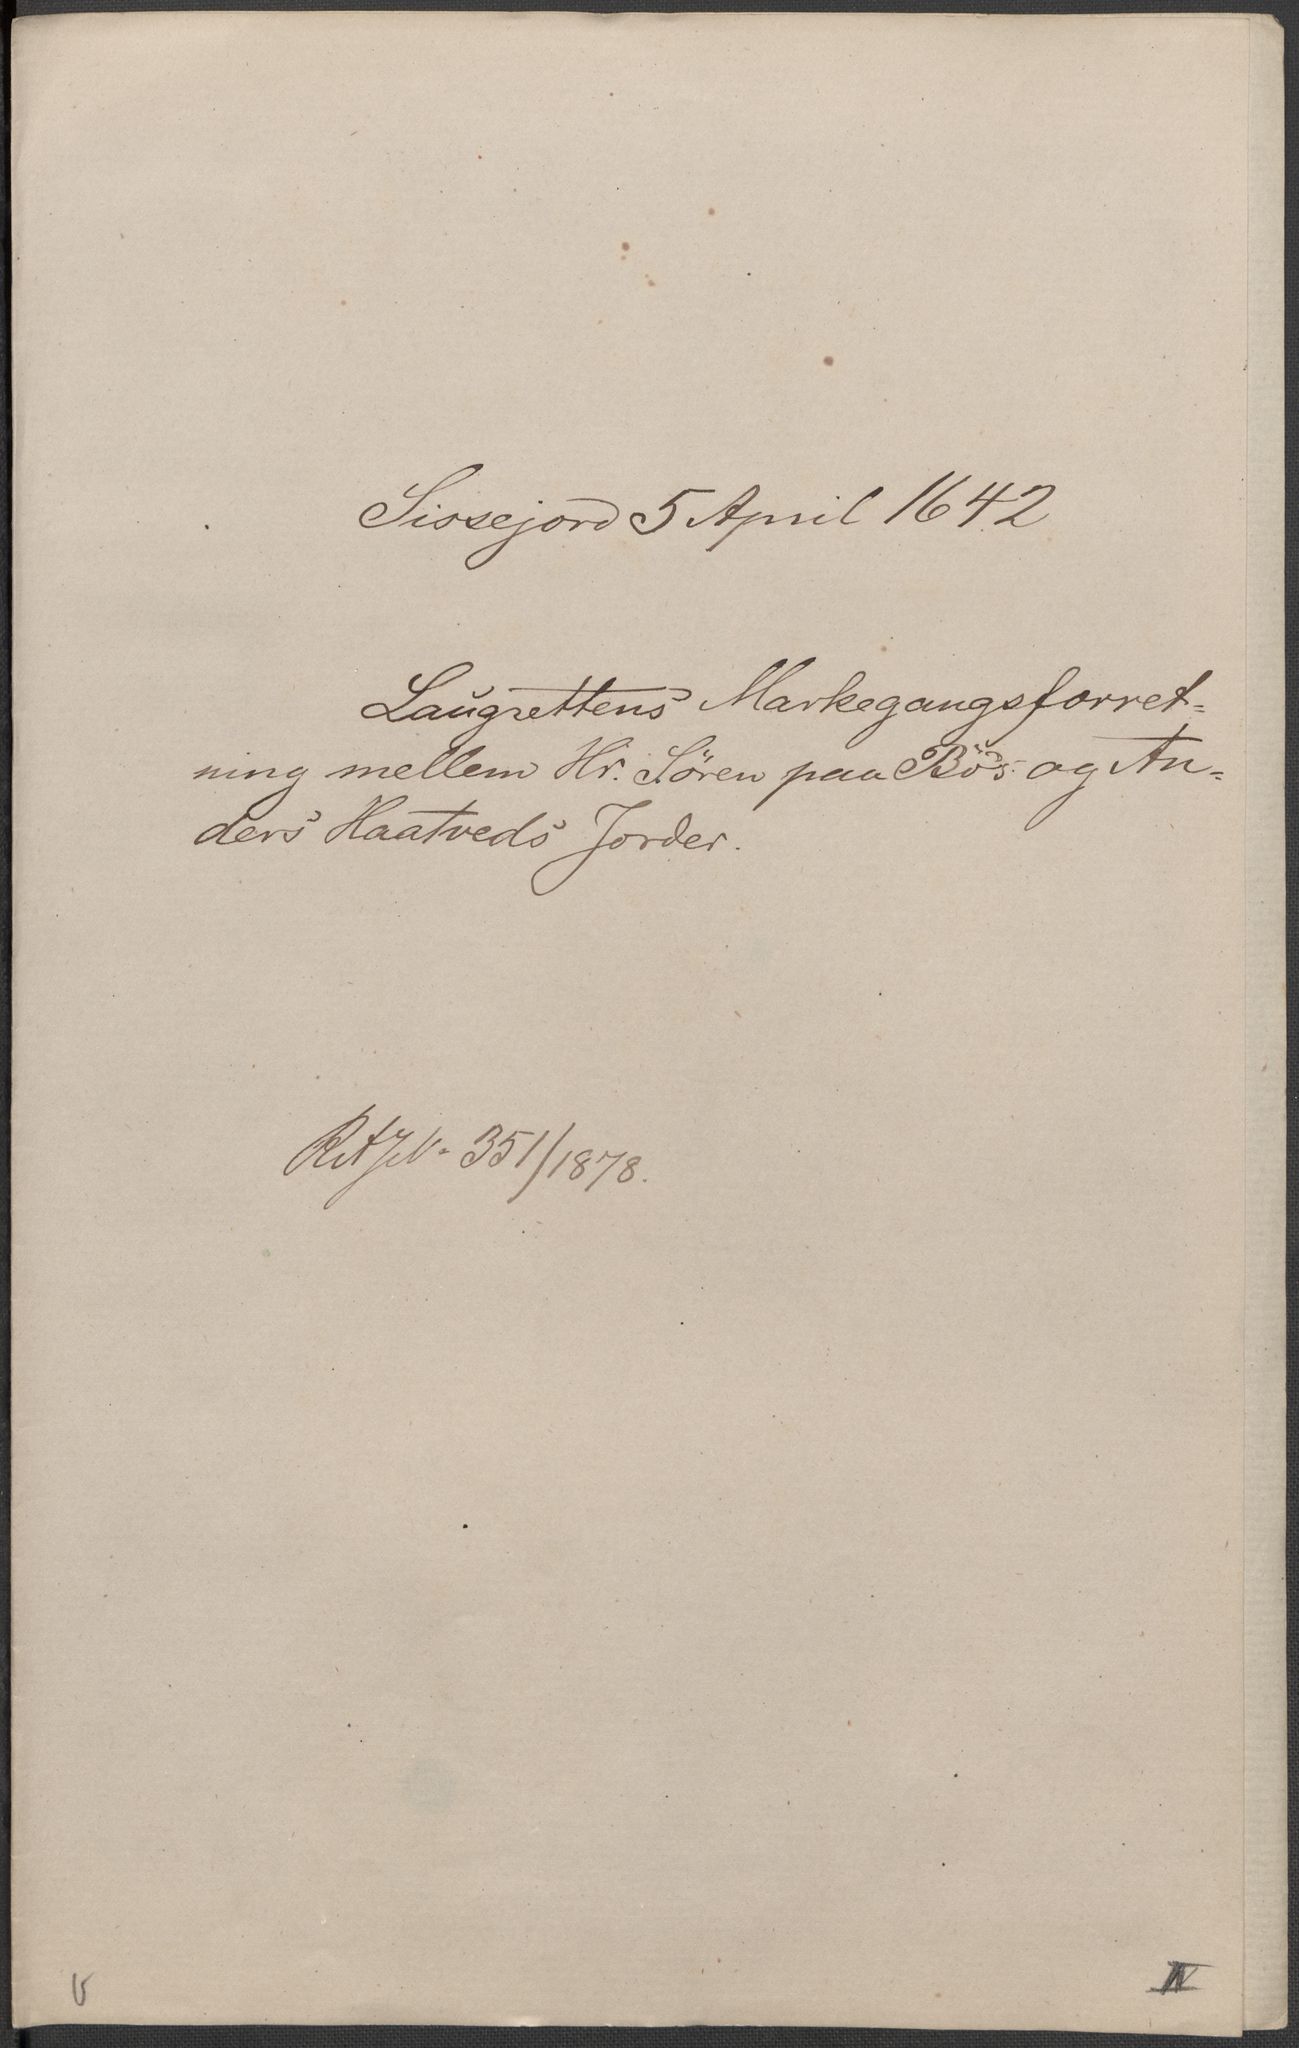 Siosejord 5 April 1642
Laugrettens Markegangsforret=
ning mellem Hr. Sören paa Bös og An=
ders Haatveds Jorder.
RA JN. 351/1878.
IV